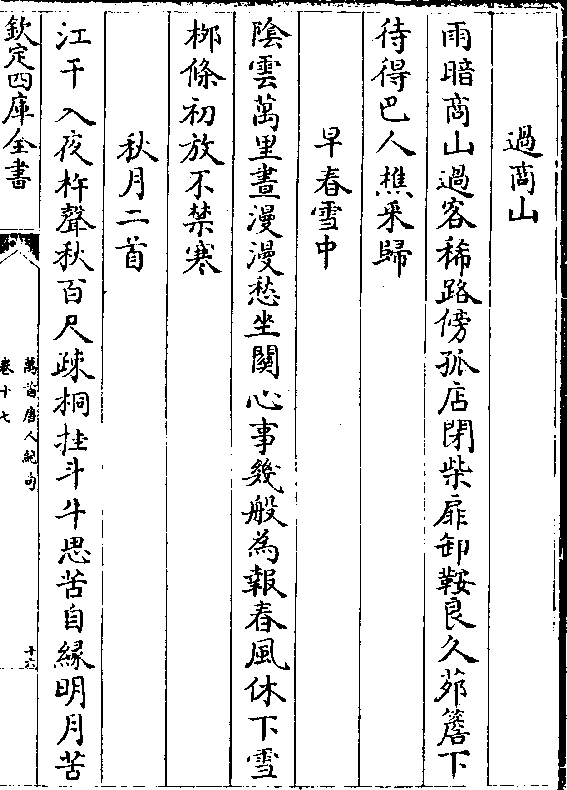 過商山
雨暗商山過客稀路傍孤店閉柴扉卸鞍良久茆簷下
待得巴人樵采歸
早春雪中
陰雲萬里晝漫漫愁坐關心事幾般為報春風休下雪
柳條初放不禁寒
秋月二首
江干入夜杵聲秋百尺疎桐挂斗牛思苦自緣明月苦
欽定四庫全書
萬首唐人絶句
卷十七
十六